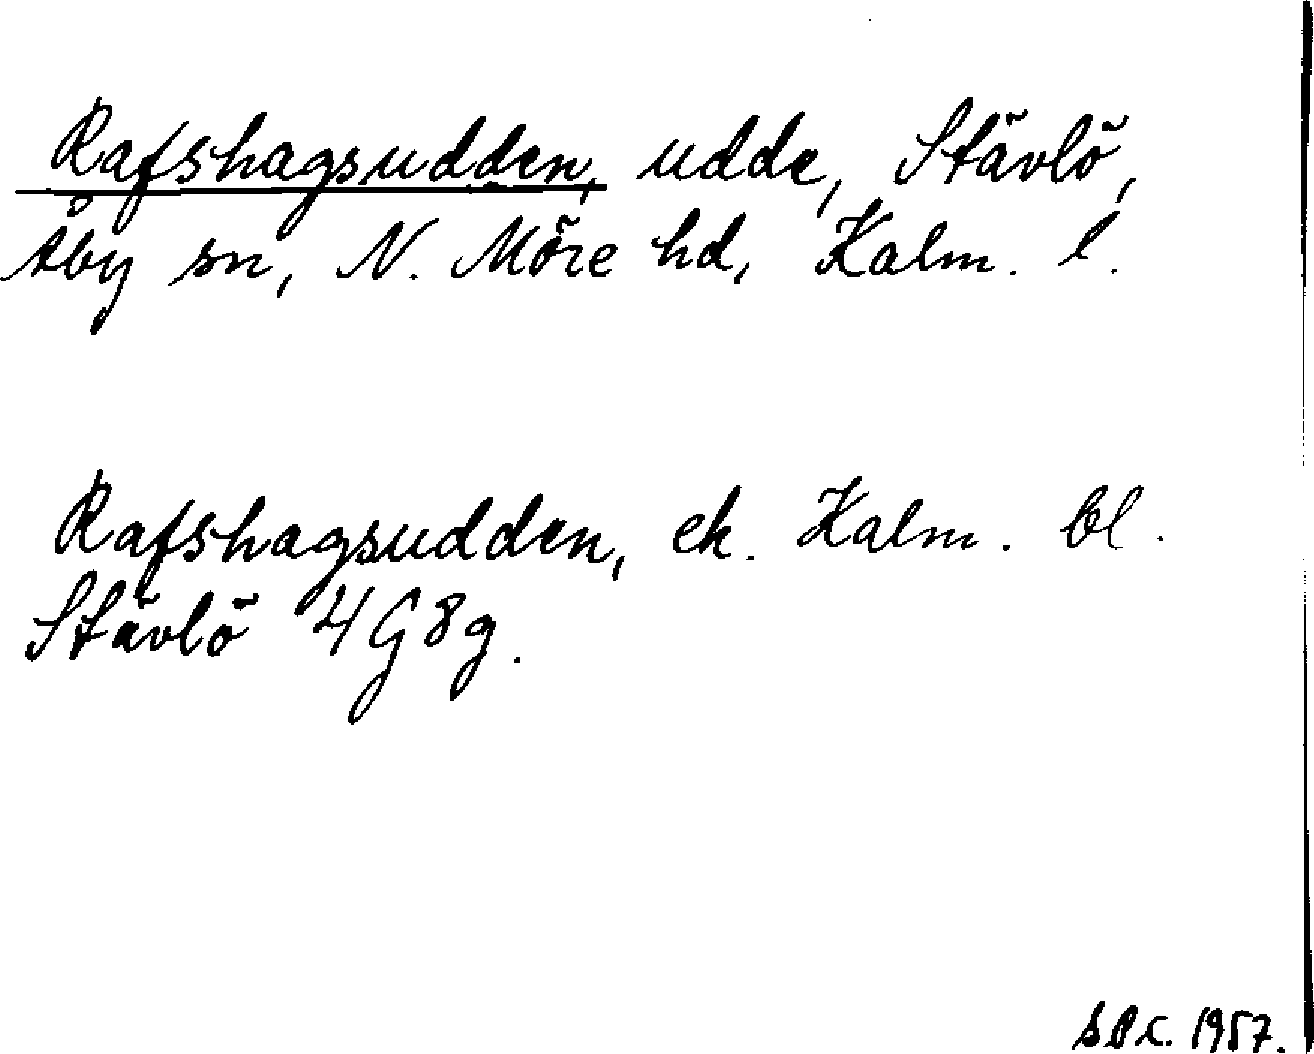 Rafshagsudden, udde, Stävlö,
Åby sn, N. Möre hd, Kalm. l.
Rafshagsudden, ek. Kalm. bl.
Stävlö 4G8g.
S.P.C. 1957.